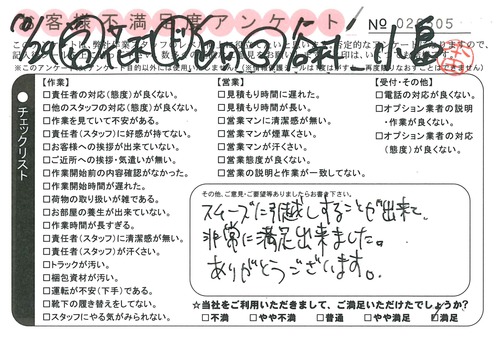 お客様不満足度アンケート
No
【作業】
□責任者の対応(態度)が良くない。
□他のスタッフの対応(態度)が良くない。
□作業を見ていて不安がある。
□責任者(スタッフ)に好感が持てない。
□お客様への挨拶が出来ていない。
□ご近所への挨拶・気遣いが無い。
□作業開始前の内容確認がなかった。
□作業開始時間が遅れた。
□荷物の取り扱いが雑である。
□お部屋の養生が出来ていない。
□作業時間が長すぎる。
□責任者(スタッフ)に清潔感が無い。
□責任者(スタッフ)が汗くさい。
□トラックが汚い。
□梱包資材が汚い。
□運転が不安(下手)である。
□靴下の履き替えをしてない。
□スタッフにやる気がみられない。
【営業】
□見積もり時間に遅れた。
□見積もり時間が長い。
□営業マンに清潔感が無い。
□営業マンが煙草くさい。
□営業マンが汗くさい。
□営業態度が良くない。
□営業の説明と作業が一致してない。
【受付・その他】
□電話の対応が良くない。
□オプション業者の説明
・作業が良くない。
□オプション業者の対応
(態度)が良くない。
●チェックリスト
その他、ご意見・ご要望等ありましたらお書き下さい。
スムーズに引越しすることが出来て、
非常に満足出来ました。
ありがとうございます。
☆当社をご利用いただきまして、ご満足いただけたでしょうか?
□不満 □やや不満 □普通 □やや満足 ☑満足